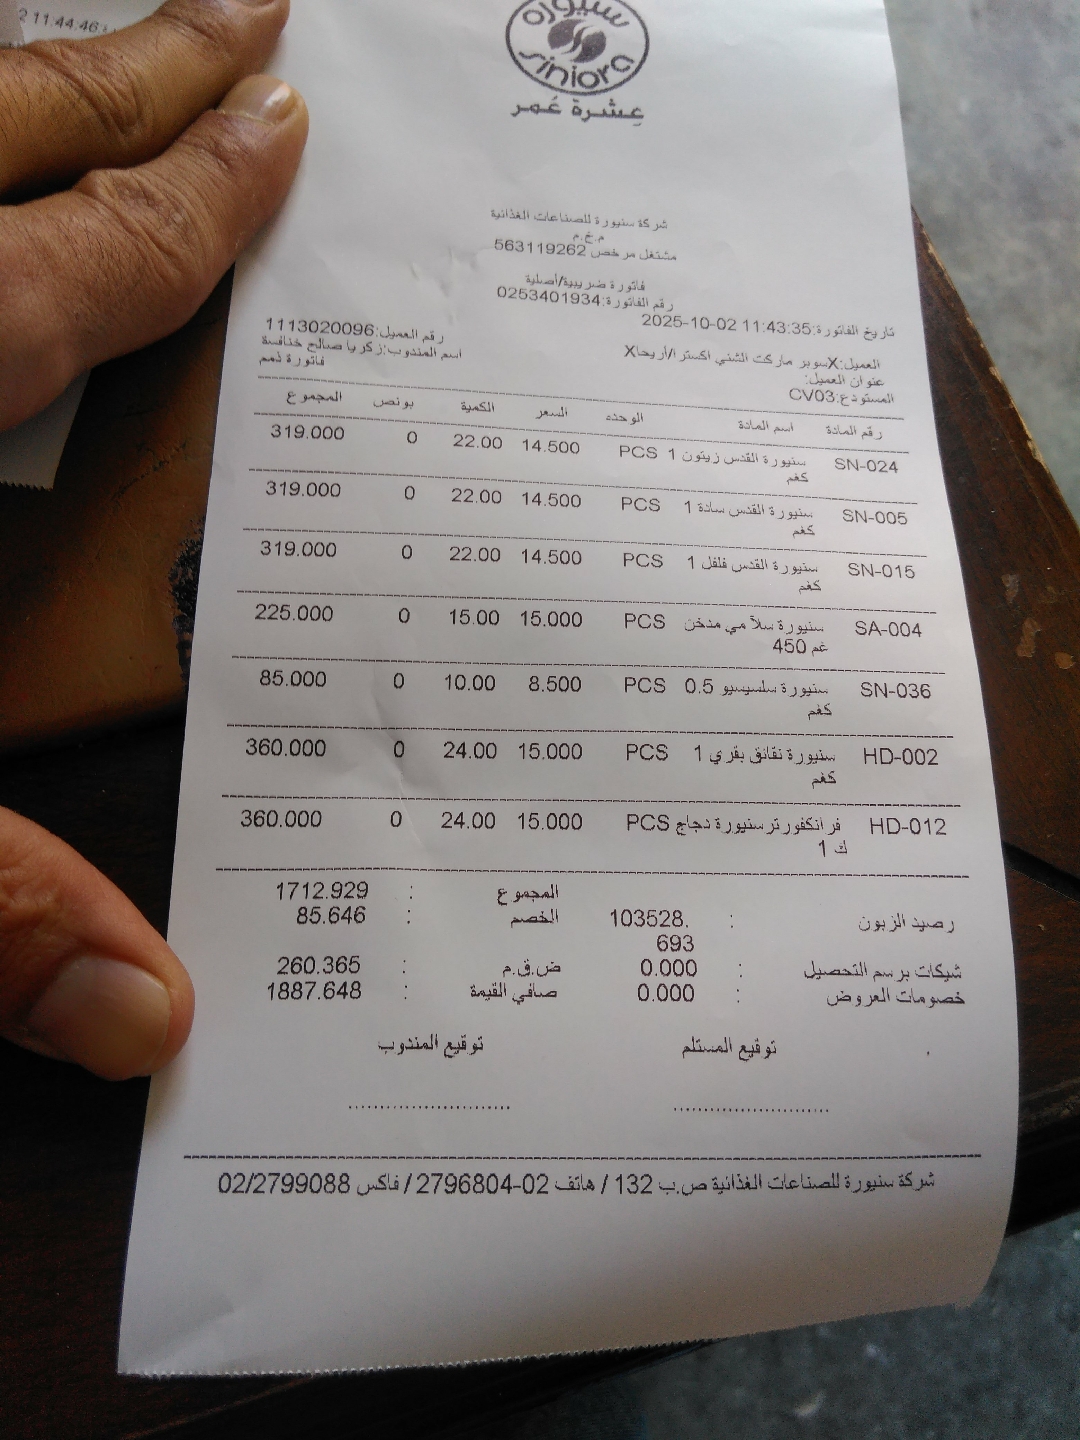 2 11:44:46
سنيورة
siniora
عِشرة عُمر
شركة سنيورة للصناعات الغذائية
م.خ.م
مشتغل مرخص 563119262
فاتورة ضريبية/أصلية
رقم الفاتورة:0253401934
تاريخ الفاتورة:2025-10-02 11:43:35
رقم العميل:1113020096
العميل:Xسوبر ماركت الشني اكسترا/أريحاX
اسم المندوب:زكريا صالح خنافسة
عنوان العميل:
فاتورة ذمم
المستودع:CV03
رقم المادة اسم المادة الوحده السعر الكمية بونص المجموع
SN-024 سنيورة القدس زيتون 1 PCS 14.500 22.00 0 319.000
كغم
SN-005 سنيورة القدس سادة 1 PCS 14.500 22.00 0 319.000
كغم
SN-015 سنيورة القدس فلفل 1 PCS 14.500 22.00 0 319.000
كغم
SA-004 سنيورة سلآمي مدخن PCS 15.000 15.00 0 225.000
450 غم
SN-036 سنيورة سلسيسيو 0.5 PCS 8.500 10.00 0 85.000
كغم
HD-002 سنيورة نقانق بقري 1 PCS 15.000 24.00 0 360.000
كغم
HD-012 فرانكفورترسنيورة دجاج PCS 15.000 24.00 0 360.000
1 ك
المجموع : 1712.929
رصيد الزبون : 103528. الخصم : 85.646
693
شيكات برسم التحصيل : 0.000 ض.ق.م : 260.365
خصومات العروض : 0.000 صافي القيمة : 1887.648
. توقيع المستلم توقيع المندوب
........................ ........................
شركة سنيورة للصناعات الغذائية ص.ب 132 / هاتف 02-2796804 / فاكس 02/2799088